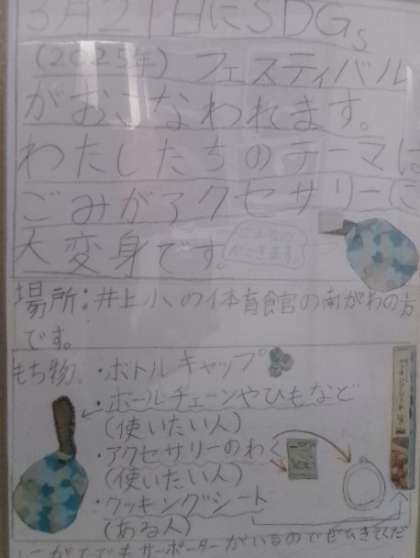 3月21日にSDGs
(2025年)フェスティバル
がおこなわれます。
わたしたちのテーマは
ごみがアクセサリーに
大変身です。
場所:井上小の体育館の南がわの方
です。
もち物 ・ボトルキャップ
・ボールチェーンやひもなど
(使いたい人)
・アクセサリーのわく
(使いたい人)
・クッキングシート
(ある人)
サポーターがいるのでぜひきてくだ